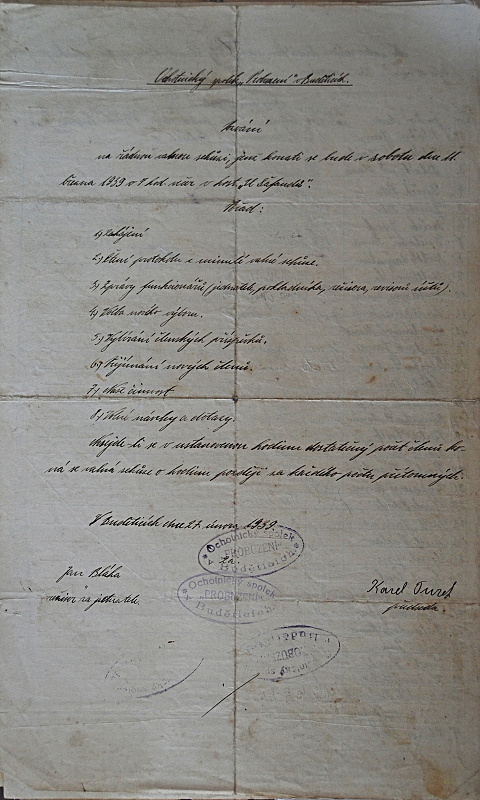 Ochotnický spolek „Probuzení“ v Buděticích.
Pozvání
na řádnou valnou schůzi, jenž konati se bude v sobotu dne 11.
března 1939 o 8 hod. večer v host. „U Šafandů“.
Pořad:
1) Zahájení
2) Čtení protokolu z minulé valné schůze.
3) Zprávy funkcionářů (jednatele, pokladníka, režiséra, revisorů účtů).
4) Volba nového výboru.
5) Vybírání členských příspěvků.
6) Přijímání nových členů.
7) Naše činnost
8) Volné návrhy a dotazy.
Nesejde-li se v ustanovenou hodinu dostatečný počet členů ko-
ná se valná schůze o hodinu později za každého počtu přítomných.
V Budětících dne 27. února 1939.
Za
Ochotnický spolek
„PROBUZENÍ“
v Budětících
Jan Bláha
Karel Turek
režisér za jednatele.
předseda.
Ochotnický spolek
„PROBUZENÍ“
v Budětících